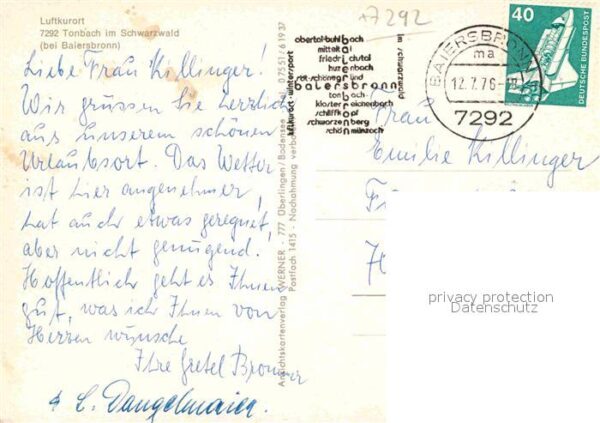 Luftkurort
7292 Tonbach im Schwarzwald
(bei Baiersbronn)
Liebe Frau Killinger!
Wir grüssen Sie herzlich
aus unserem schönen
Urlaubsort. Das Wetter
ist hier angenehmer,
hat auch etwas geregnet,
aber nicht genügend.
Hoffentlich geht es Ihnen
gut, was ich Ihnen von
Herzen wünsche
Ihre Gretel Bronner
& L. Dangelmaier.
Ansichtskartenverlag WERNER - 777 Überlingen/Bodensee Tel. 07551/61937
Postfach 1415 - Nachahmung verboten
7292
luftkurort · wintersport
obertal-buhlbach
mitteltal
friedrichstal
huzenbach
röt-schönegründ
baiersbronn
tonbach
kloster reichenbach
schliffkopf
schwarzenberg
schönmünzach
im schwarzwald
BAIERSBRONN
ma
12.7.76-18
7292
40
DEUTSCHE BUNDESPOST
Frau
Emilie Killinger
privacy protection
Datenschutz